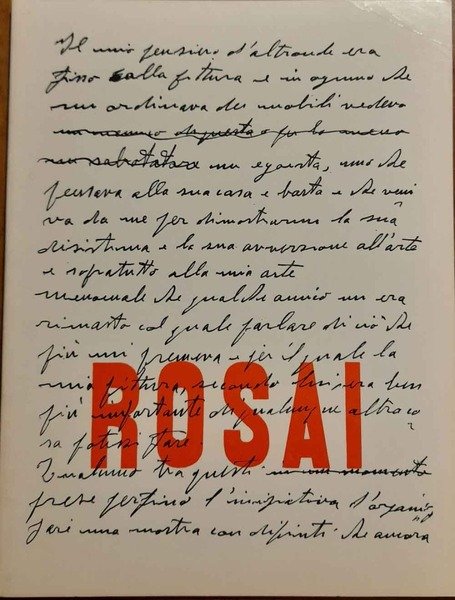 Il mio pensiero d'altronde era
fisso alla pittura e in ognuno che
mi ordinava dei mobili vedevo
un nemico di questa o per lo meno
un sabotatore un egoista, uno che
pensava alla sua casa e basta e che veni
va da me per dimostrarmi la sua
disistima e la sua avversione all'arte
e sopratutto alla mia arte
menomale che qualche amico mi era
rimasto col quale parlare di ciò che
più mi premeva e per il quale la
mia pittura, secondo lui, era ben
più importante di qualunque altra co
sa potessi fare.
ROSAI
E qualcuno tra questi in un momento
prese perfino l'iniziativa d'organiz
zare una mostra con dipinti che ancora